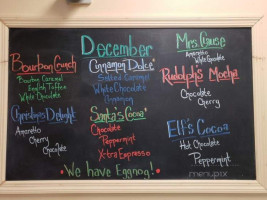 December
Bourbon Crunch
Bourbon Caramel
English Toffee
White Chocolate
Cherries Delight
Amaretto
Cherry
Chocolate
Cinnamon Dolce*
Salted Caramel
White Chocolate
Cinnamon
Santa's Cocoa*
Chocolate
Peppermint
Xtra Espresso
*We have Eggnog!*
Mrs. Clause
Amaretto
White Chocolate
Rudolph's Mocha
Chocolate
Cherry
Elf's Cocoa
Hot Chocolate
Peppermint